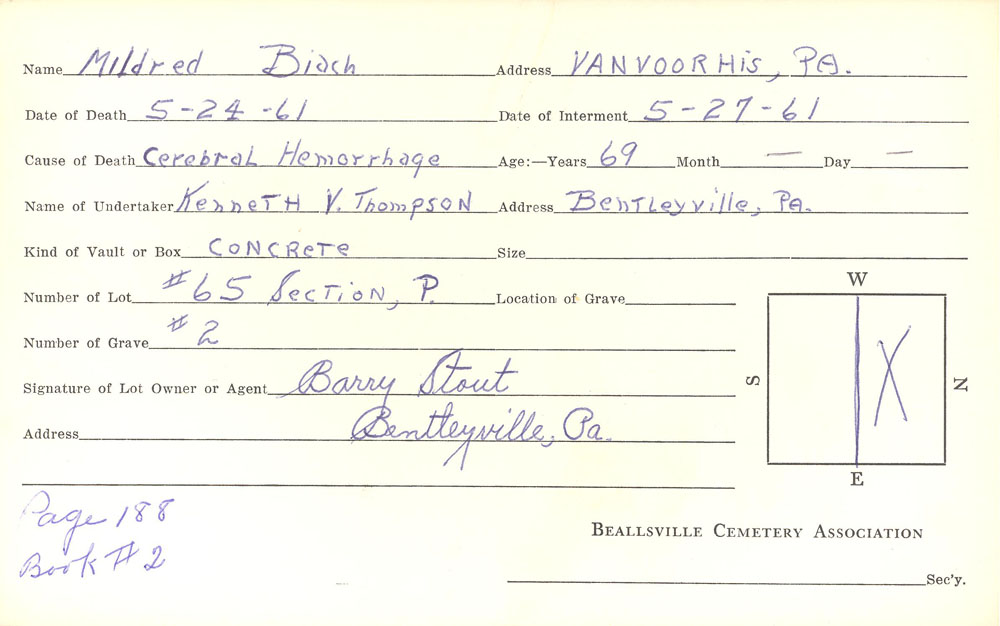 Name Mildred Biach Address VANVOORHis, PA.
Date of Death 5-24-61 Date of Interment 5-27-61
Cause of Death Cerebral Hemorrhage Age:—Years 69 Month — Day —
Name of Undertaker Kenneth V. Thompson Address Bentleyville, Pa.
Kind of Vault or Box Concrete Size
Number of Lot #65 Section, P. Location of Grave
Number of Grave #2
Signature of Lot Owner or Agent Barry Stout
Address Bentleyville, Pa.
W
S X N
E
Page 188
Book #2
BEALLSVILLE CEMETERY ASSOCIATION
Sec'y.